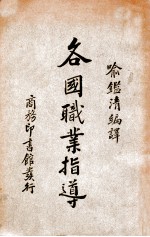 喻鑑清編譯
各國職業指導
商務印書館發行